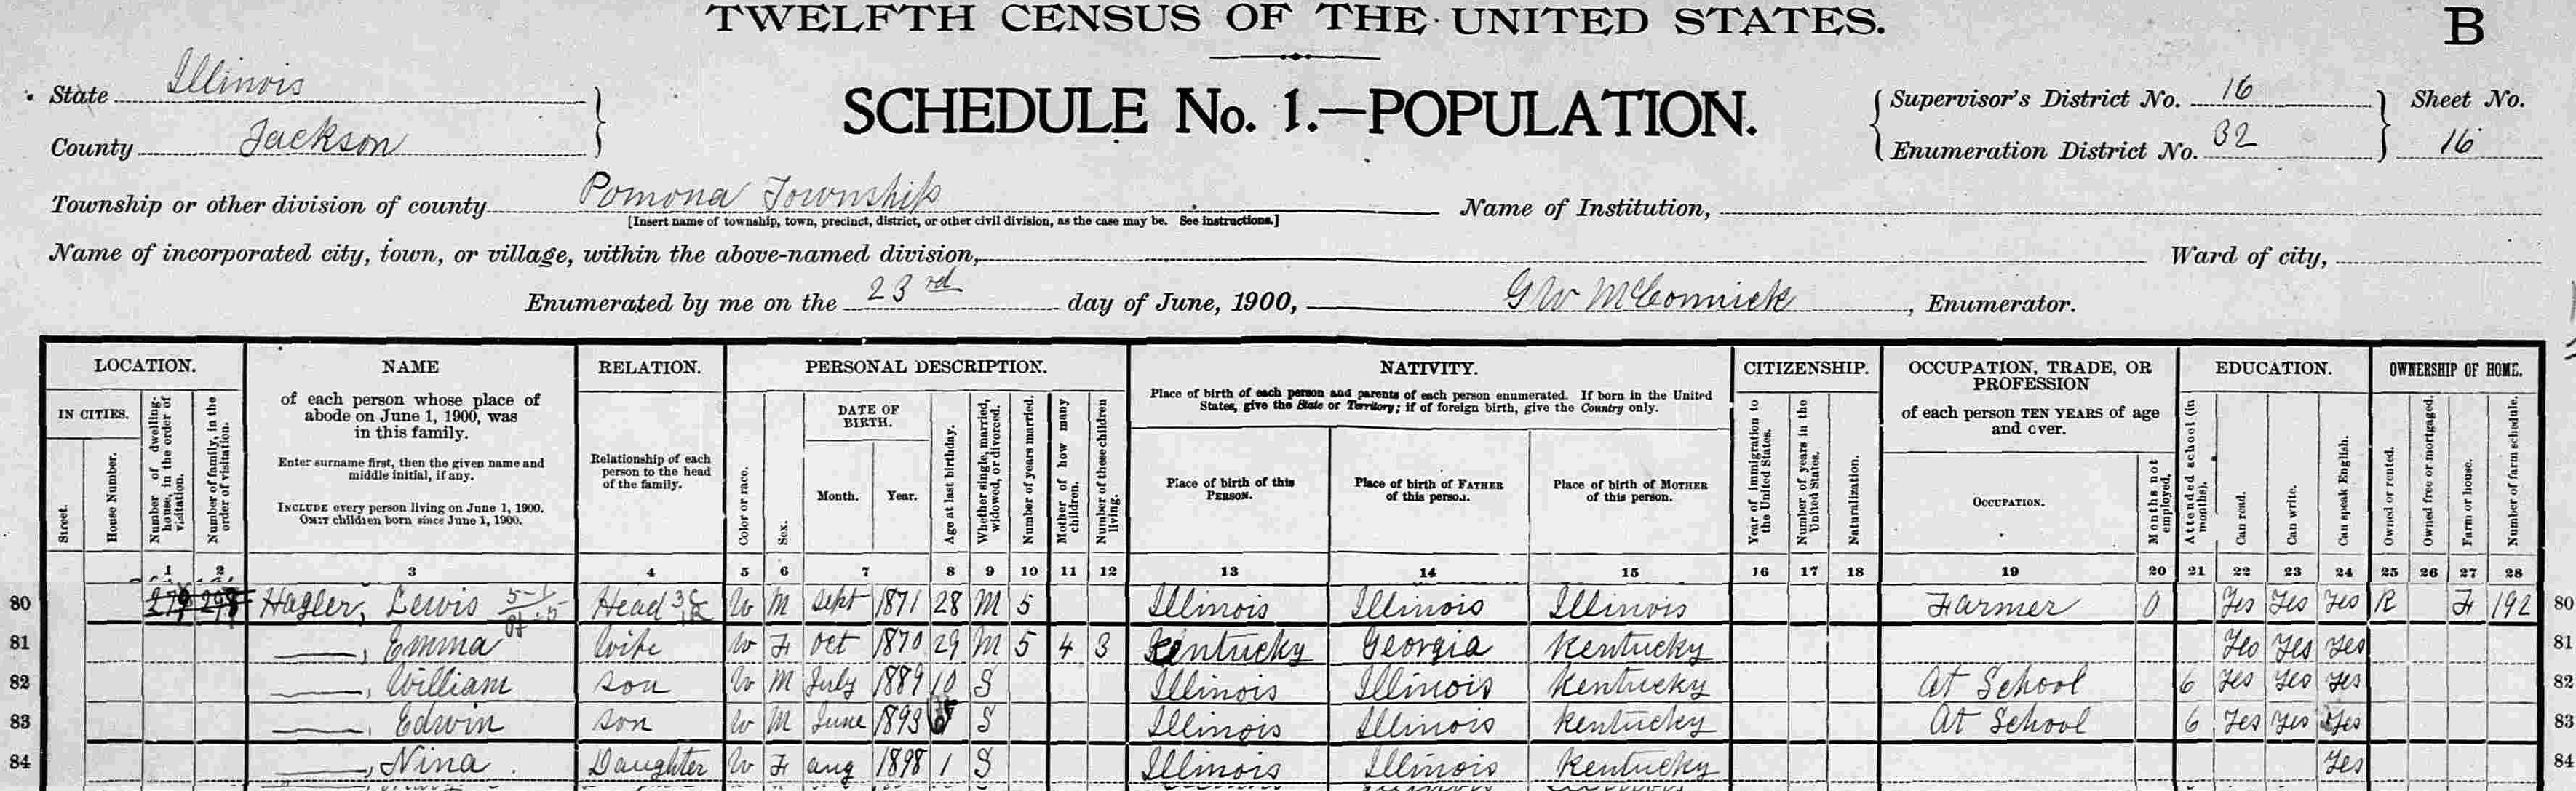 TWELFTH CENSUS OF THE UNITED STATES.
B
State Illinois
County Jackson
SCHEDULE No. 1.—POPULATION.
Supervisor's District No. 16
Enumeration District No. 32
Sheet No.
16
Township or other division of county Pomona Township
[Insert name of township, town, precinct, district, or other civil division, as the case may be. See instructions.]
Name of Institution,
Name of incorporated city, town, or village, within the above-named division,
Ward of city,
Enumerated by me on the 23rd day of June, 1900, G W McCormick, Enumerator.
LOCATION.
IN CITIES.
Street.
House Number.
Number of dwelling-house, in the order of visitation.
Number of family, in the order of visitation.
NAME
of each person whose place of
abode on June 1, 1900, was
in this family.
Enter surname first, then the given name and
middle initial, if any.
INCLUDE every person living on June 1, 1900.
OMIT children born since June 1, 1900.
RELATION.
Relationship of each
person to the head
of the family.
PERSONAL DESCRIPTION.
Color or race.
Sex.
DATE OF
BIRTH.
Month.
Year.
Age at last birthday.
Whether single, married, widowed, or divorced.
Number of years married.
Mother of how many children.
Number of these children living.
NATIVITY.
Place of birth of each person and parents of each person enumerated. If born in the United
States, give the State or Territory; if of foreign birth, give the Country only.
Place of birth of this
PERSON.
Place of birth of FATHER
of this person.
Place of birth of MOTHER
of this person.
CITIZENSHIP.
Year of immigration to the United States.
Number of years in the United States.
Naturalization.
OCCUPATION, TRADE, OR
PROFESSION
of each person TEN YEARS of age
and over.
OCCUPATION.
Months not employed.
EDUCATION.
Attended school (in months).
Can read.
Can write.
Can speak English.
OWNERSHIP OF HOME.
Owned or rented.
Owned free or mortgaged.
Farm or house.
Number of farm schedule.
1 2 3 4 5 6 7 8 9 10 11 12 13 14 15 16 17 18 19 20 21 22 23 24 25 26 27 28
80 Hagler, Lewis Head W M Sept 1871 28 M 5 Illinois Illinois Illinois Farmer 0 Yes Yes Yes R F 192 80
81 ——, Emma Wife W F Oct 1870 29 M 5 4 3 Kentucky Georgia Kentucky Yes Yes Yes 81
82 ——, William son W M July 1889 10 S Illinois Illinois Kentucky At School 6 Yes Yes Yes 82
83 ——, Edwin son W M June 1893 S Illinois Illinois Kentucky At School 6 Yes Yes Yes 83
84 ——, Nina Daughter W F aug 1898 1 S Illinois Illinois Kentucky Yes 84